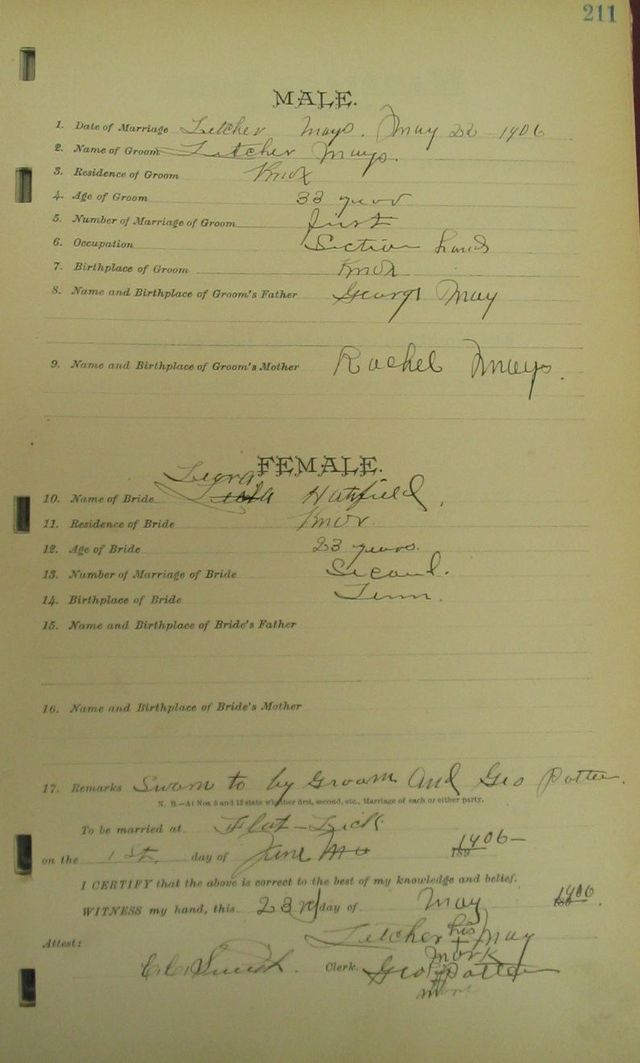 211
MALE.
1. Date of Marriage Letcher Mays. May 22 - 1906
2. Name of Groom Letcher Mays.
3. Residence of Groom Knox
4. Age of Groom 33 years
5. Number of Marriage of Groom first
6. Occupation Section hand
7. Birthplace of Groom Knox
8. Name and Birthplace of Groom's Father George May
9. Name and Birthplace of Groom's Mother Rachel Mays.
FEMALE.
Leora
10. Name of Bride Hatfield.
11. Residence of Bride Knox.
12. Age of Bride 23 years.
13. Number of Marriage of Bride Second.
14. Birthplace of Bride Tenn.
15. Name and Birthplace of Bride's Father
16. Name and Birthplace of Bride's Mother
17. Remarks Sworn to by Groom and Geo Potter.
N. B.—At Nos 5 and 13 state whether first, second, etc., Marriage of each or either party.
To be married at Flat-Lick
on the 1st. day of June 1906-
I CERTIFY that the above is correct to the best of my knowledge and belief.
WITNESS my hand, this 23rd day of May 1906.
Letcher his + mark May
Attest:
Clerk. Geo his + mark Potter